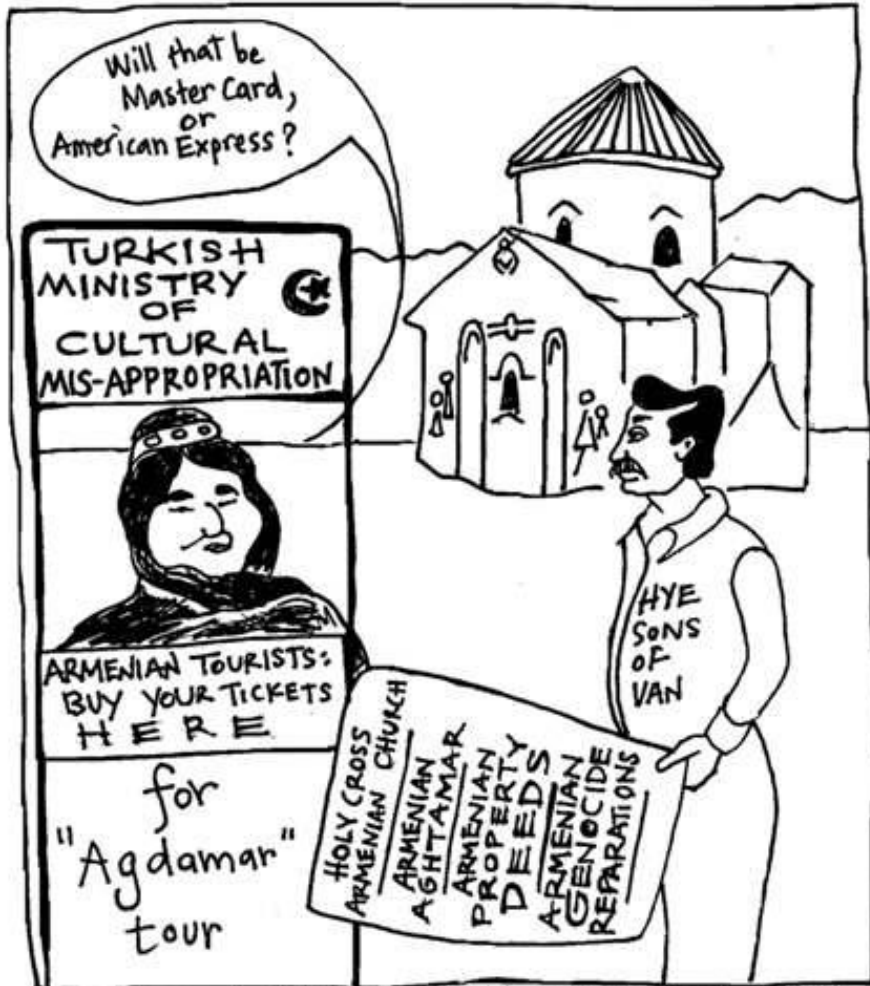 Will that be
Master Card,
or
American Express?
TURKISH
MINISTRY
OF
CULTURAL
MIS-APPROPRIATION
ARMENIAN TOURISTS:
BUY YOUR TICKETS
HERE
for
"Agdamar"
tour
HYE
SONS
OF
VAN
HOLY CROSS
ARMENIAN CHURCH
ARMENIAN
AGHTAMAR
ARMENIAN
PROPERTY
DEEDS
ARMENIAN
GENOCIDE
REPARATIONS